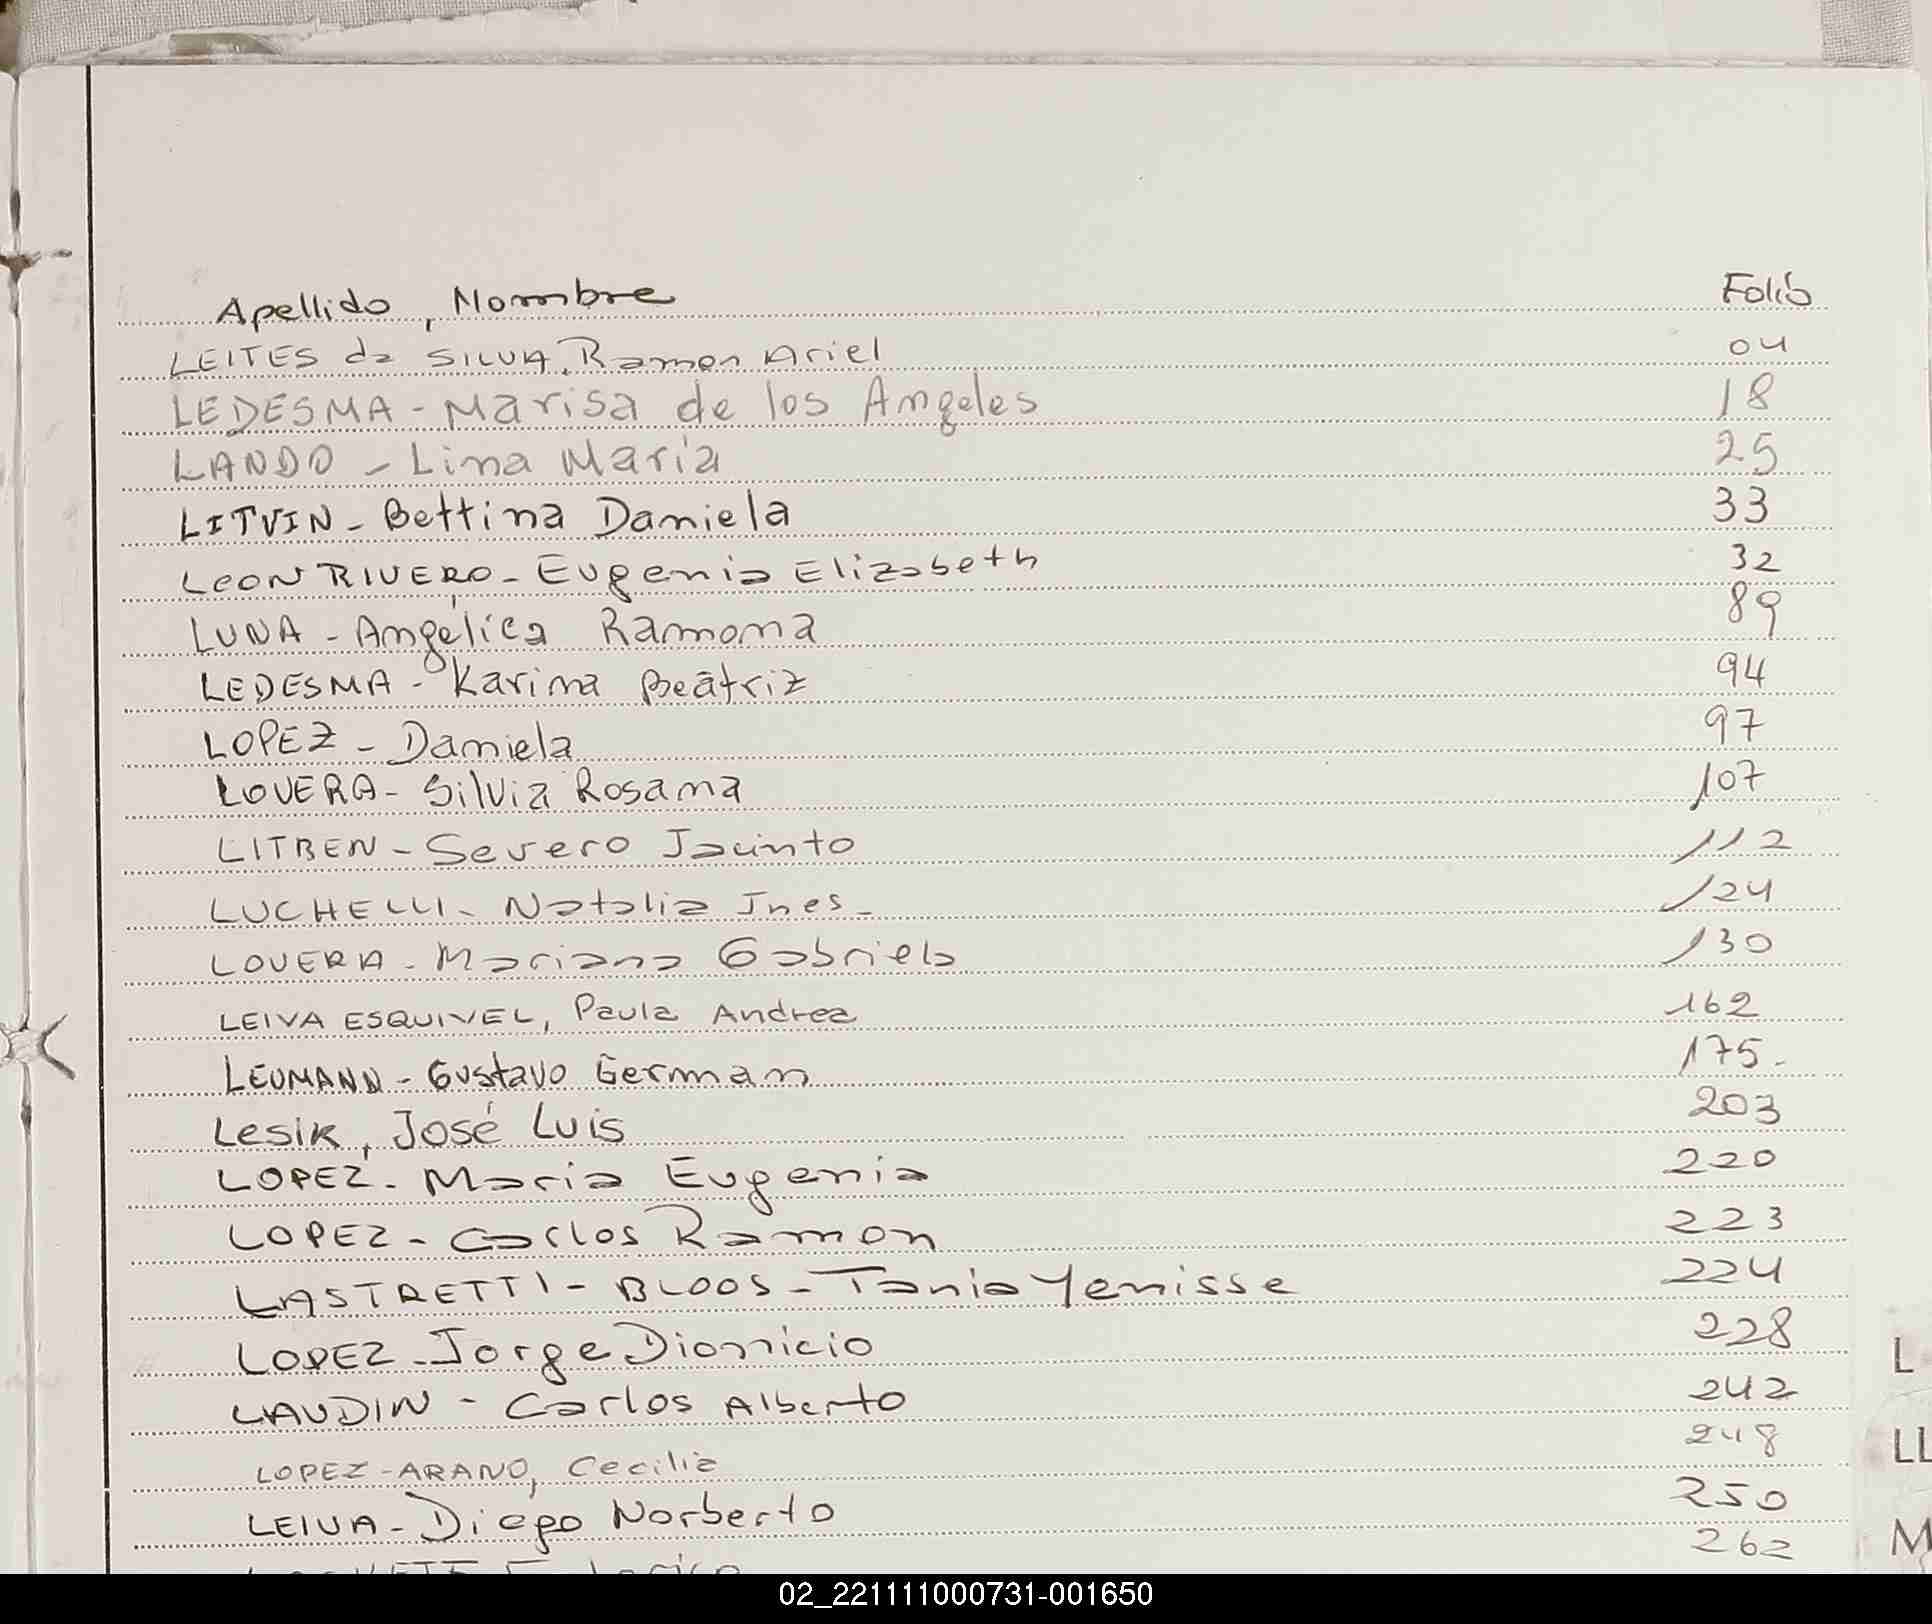 Apellido, Nombre Folio
LEITES da SILVA, Ramon Ariel 04
LEDESMA - Marisa de los Angeles 18
LANDO - Lina María 25
LITVIN - Bettina Daniela 33
LEON RIVERO - Eugenia Elizabeth 32
LUNA - Angélica Ramona 89
LEDESMA - Karina Beatriz 94
LOPEZ - Daniela 97
LOVERA - Silvia Rosana 107
LITBEN - Severo Jacinto 112
LUCHELLI - Natalia Ines - 124
LOVERA - Mariana Gabriela 130
LEIVA ESQUIVEL, Paula Andrea 162
LEUMANN - Gustavo German 175.
LesiK, José Luis 203
LOPEZ - Maria Eugenia 220
LOPEZ - Carlos Ramon 223
LASTRETTI - BLOOS - Tania Yenisse 224
LOPEZ - Jorge Dionicio 228
L
LAUDIN - Carlos Alberto 242
LOPEZ - ARANO, Cecilia 248
LL
LEIVA - Diego Norberto 250
262
M
02_221111000731-001650